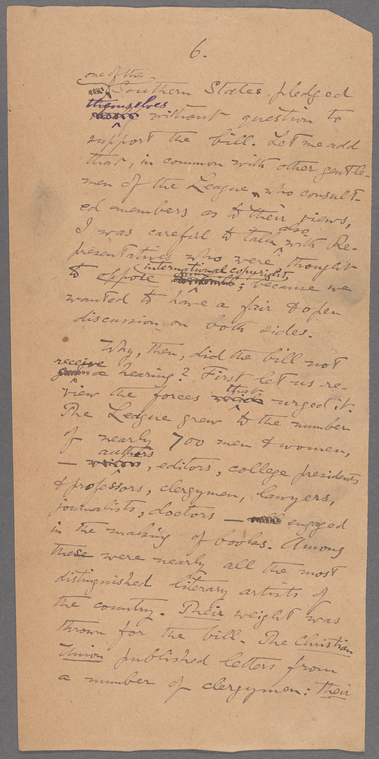 6.
one of the
Southern States, pledged
themselves
without question to
support the bill. Let me add
that, in common with other gentle-
men of the League, who consult-
ed members as to their views,
also
I was careful to talk with Re-
presentatives who were thought
international copyright
to oppose ; because we
wanted to have a fair & open
discussion on both sides.
Why, then, did the bill not
receive
a hearing? First let us re-
that
view the forces urged it.
The League grew to the number
of nearly 700 men & women,
authors
— , editors, college presidents
& professors, clergymen, lawyers,
journalists, doctors — engaged
in the making of books. Among
these were nearly all the most
distinguished literary artists of
the country. Their weight was
thrown for the bill. The Christian
Union published letters from
a number of clergymen: Their